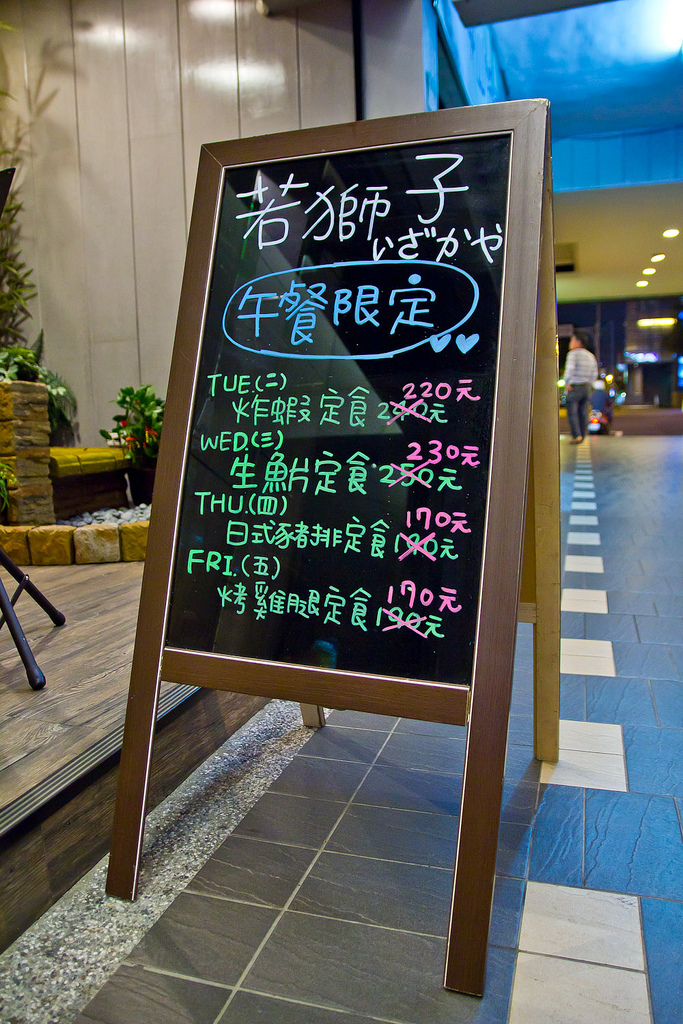 若獅子
いざかや
午餐限定
TUE.(二) 220元
炸蝦定食 240元
WED.(三) 230元
生魚片定食 250元
THU.(四) 170元
日式豬排定食 190元
FRI.(五) 170元
烤雞腿定食 190元